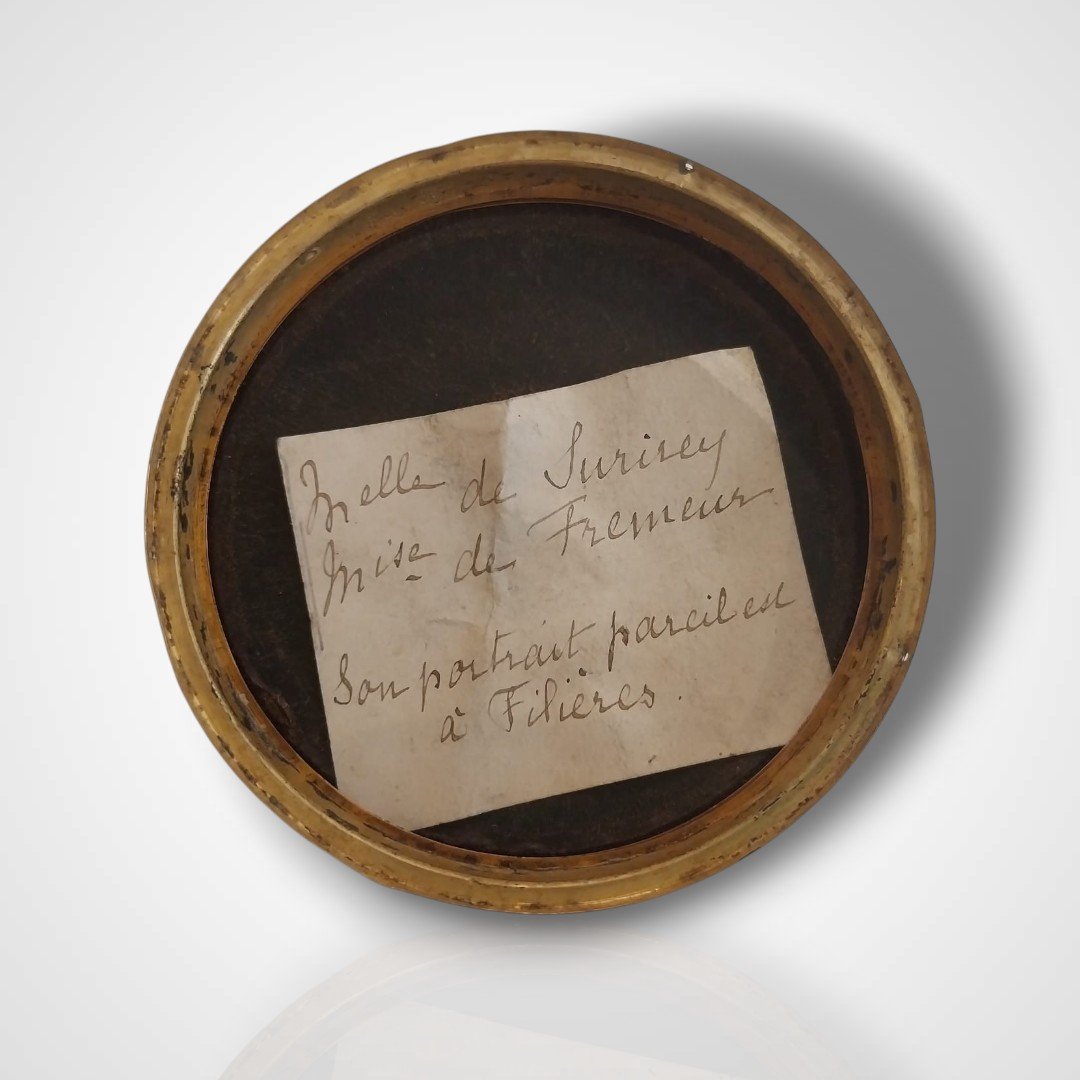 Melle de Surirey
Mise de Fremeur
Son portrait pareil est
à Filières.